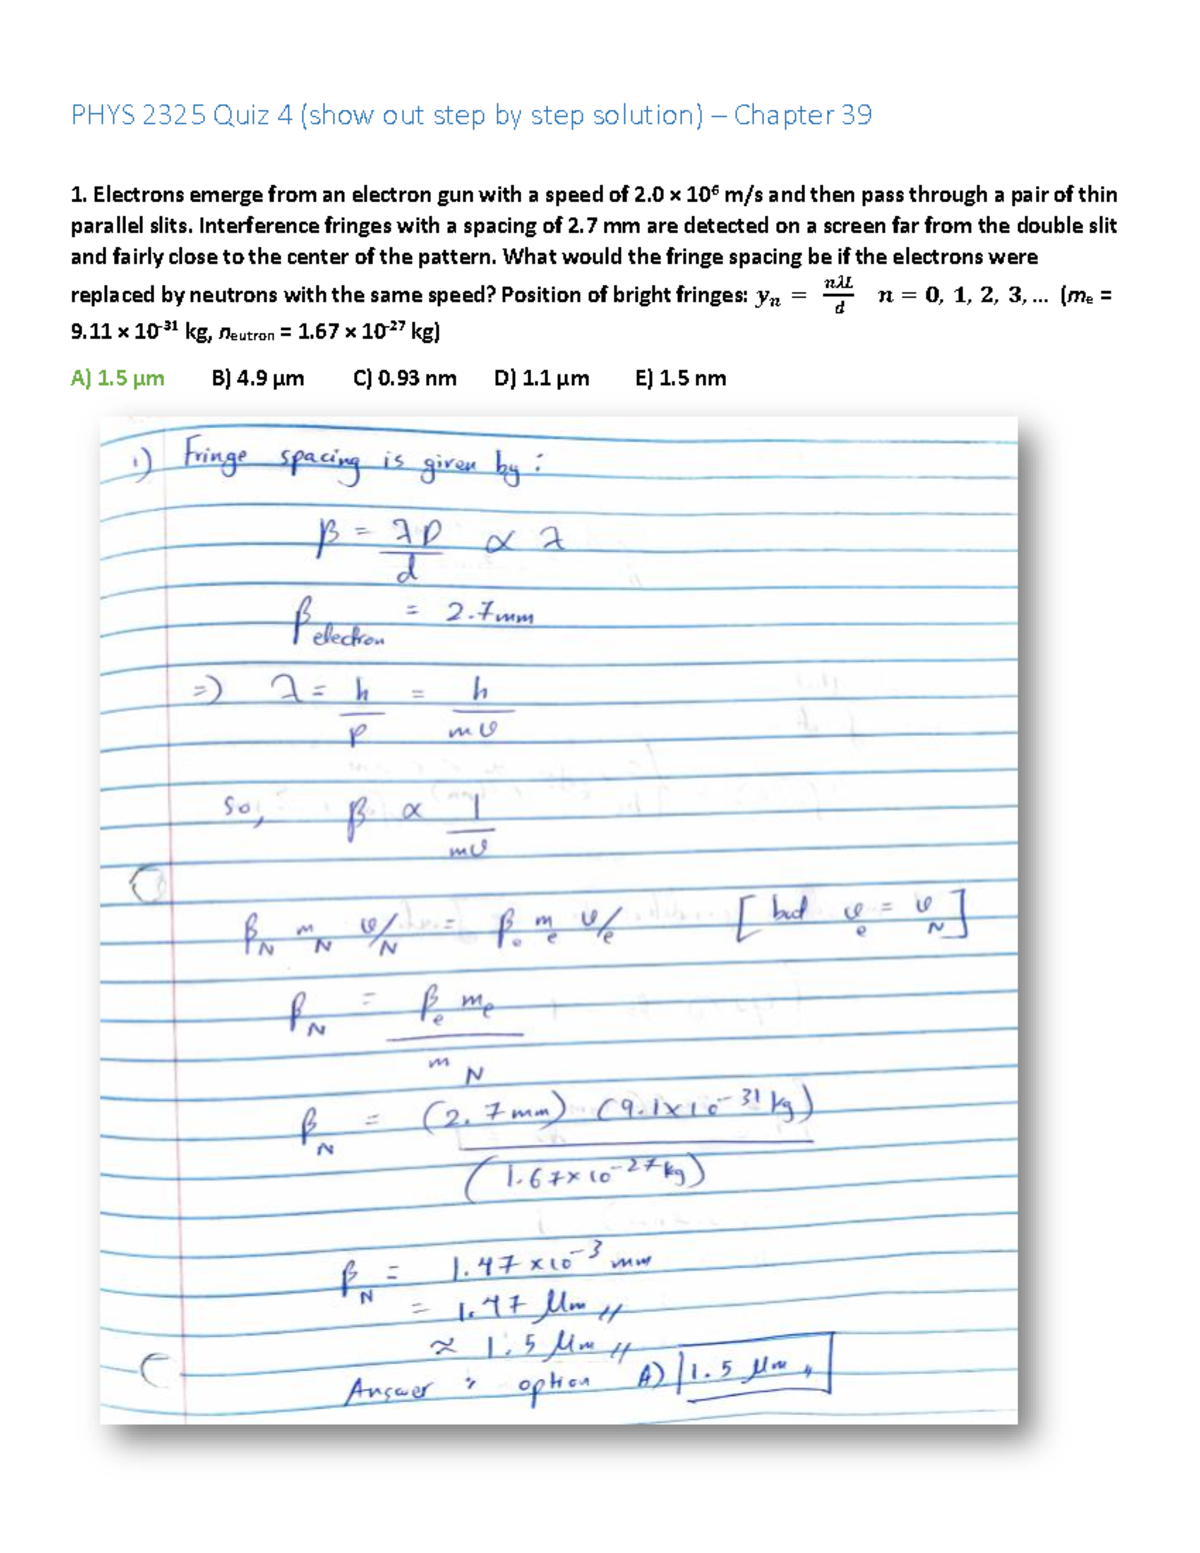 PHYS 2325 Quiz 4 (show out step by step solution) – Chapter 39
1. Electrons emerge from an electron gun with a speed of 2.0 × 10⁶ m/s and then pass through a pair of thin
parallel slits. Interference fringes with a spacing of 2.7 mm are detected on a screen far from the double slit
and fairly close to the center of the pattern. What would the fringe spacing be if the electrons were
replaced by neutrons with the same speed? Position of bright fringes: yₙ = nλL/d n = 0, 1, 2, 3, … (mₑ =
9.11 × 10⁻³¹ kg, neutron = 1.67 × 10⁻²⁷ kg)
A) 1.5 μm B) 4.9 μm C) 0.93 nm D) 1.1 μm E) 1.5 nm
1) Fringe spacing is given by :
β = λD/d ∝ λ
β electron = 2.7mm
=) λ = h/p = h/mv
So, β ∝ 1/mv
β_N m_N v_N = β_e m_e v_e [but v_e = v_N]
β_N = β_e m_e / m_N
β_N = (2.7mm) (9.1×10⁻³¹kg) / (1.67×10⁻²⁷kg)
β_N = 1.47×10⁻³ mm
= 1.47 μm //
≈ 1.5 μm //
Answer : option A) 1.5 μm //